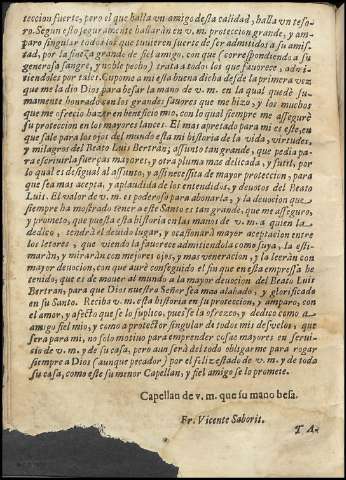 teccion suerte, pero el que halla vn amigo desta calidad, halla vn teso-
ro. Segun esto seguramente hallarán en v. m. proteccion grande, y am-
paro singular todos los que tuvieren suerte de ser admitidos a su amis-
tad, por la fineza grande de fiel amigo, con que (correspondiendo a su
generosa sangre, y noble pecho) trata a todos los que favorece, advir-
tiendoles por tales. Cupome a mi esta buena dicha desde la primera vez
que me la dio Dios para besar la mano de v. m. en la qual quedè su-
mamente honrado con los grandes favores que me hizo, y los muchos
que me ofrecio hazer en beneficio mio, con lo qual siempre me asseguré
su proteccion en los mayores lances. El mas apretado para mi es este, en
que sale para los ojos del mundo esta mi historia de la vida, virtudes,
y milagros del Beato Luis Bertran, assunto tan grande, que pedia pa-
ra escrivirla fuerças mayores, y otra pluma mas delicada, y sutil, por
lo qual es desigual al assunto, y assi necessita de mayor proteccion, para
que sea mas acepta, y aplaudida de los entendidos, y devotos del Beato
Luis. El valor de v. m. es poderoso para abonarla, y la devocion que
siempre ha mostrado tener a este Santo es tan grande, que me asseguro,
y prometo, que puesta esta historia en las manos de v. m. a quien la
dedico, tendrà el devido lugar, y ocasionarà mayor aceptacion entre
los letores, que viendo la favorece admitiendola como suya, la esti-
marán, y mirarán con mejores ojos, y mas veneracion, y la leerán con
mayor devocion, con que aurè conseguido el fin que en esta empressa he
tenido, que es de mover al mundo a la mayor devocion del Beato Luis
Bertran, para que Dios nuestro Señor sea mas alabado, y glorificado
en su Santo. Reciba v. m. esta historia en su proteccion, y amparo, con
el amor, y afecto que se lo suplico, pues se la ofrezco, y dedico como a
amigo fiel mio, y como a protector singular de todos mis desvelos, que
sera para mi, no solo motivo para emprender cosas mayores en servi-
cio de v. m. y de su casa, pero aun serà del todo obligarme para rogar
siempre a Dios (aunque pecador) por el feliz estado de v. m. y de toda
su casa, como este su menor Capellan, y fiel amigo se lo promete.
Capellan de v. m. que su mano besa.
Fr. Vicente Saborit.
T A-